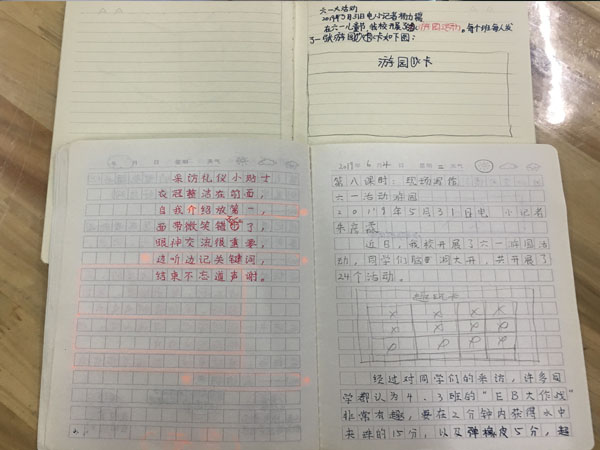 六一大活动
在六一儿童节,我校开展了游园活动。每个班每人发
了一张游园卡如下图:
游园卡
采访礼仪小贴士
衣冠整洁在前面,
自我介绍放第一,
面带微笑错不了,
眼神交流很重要,
边听边记关键词,
结束不忘道声谢。
2019年 6月 4日 星期二 天气
第八课时:现场写作
六一活动游园
2019年5月31日电 小记者
近日,我校开展了六一游园活
动,同学们脑洞大开,共开展了
24个活动。
游玩卡
经过对同学们的采访,许多同
学都认为4.3班的“EB大作战”
非常有趣,要在2分钟内获得水中
夹珠的15分,以及弹橡皮5分,起